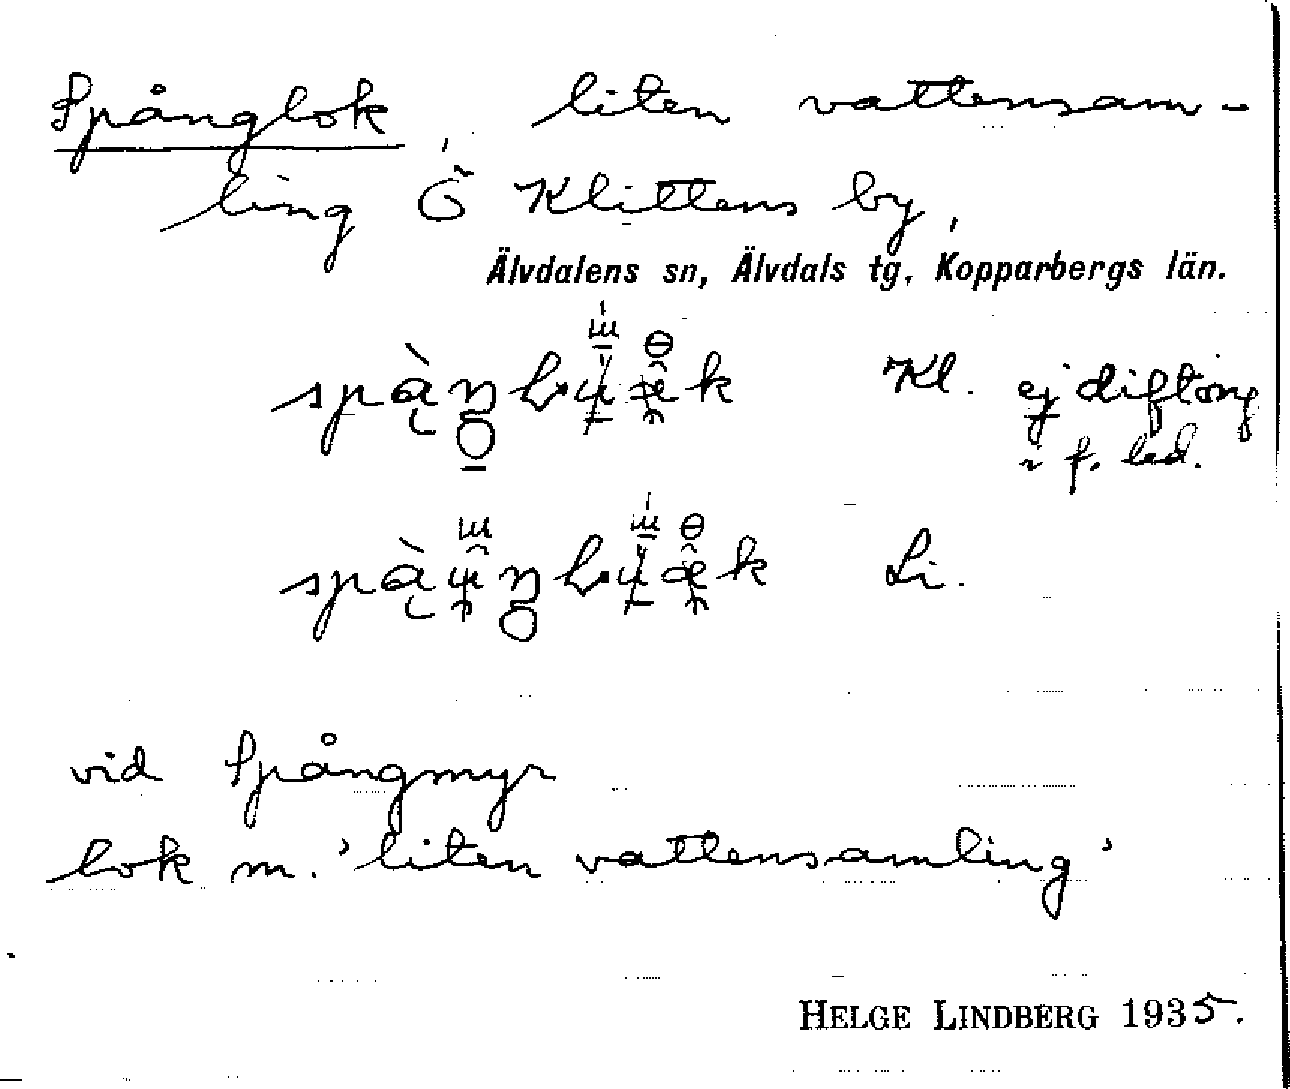 Spånglok, liten vattensam-
ling Ö Klittens by,
Älvdalens sn, Älvdals tg, Kopparbergs län.
Kl. ej diftong
i f. led.
Li.
vid Spångmyr
lok m. 'liten vattensamling'
HELGE LINDBERG 1935.